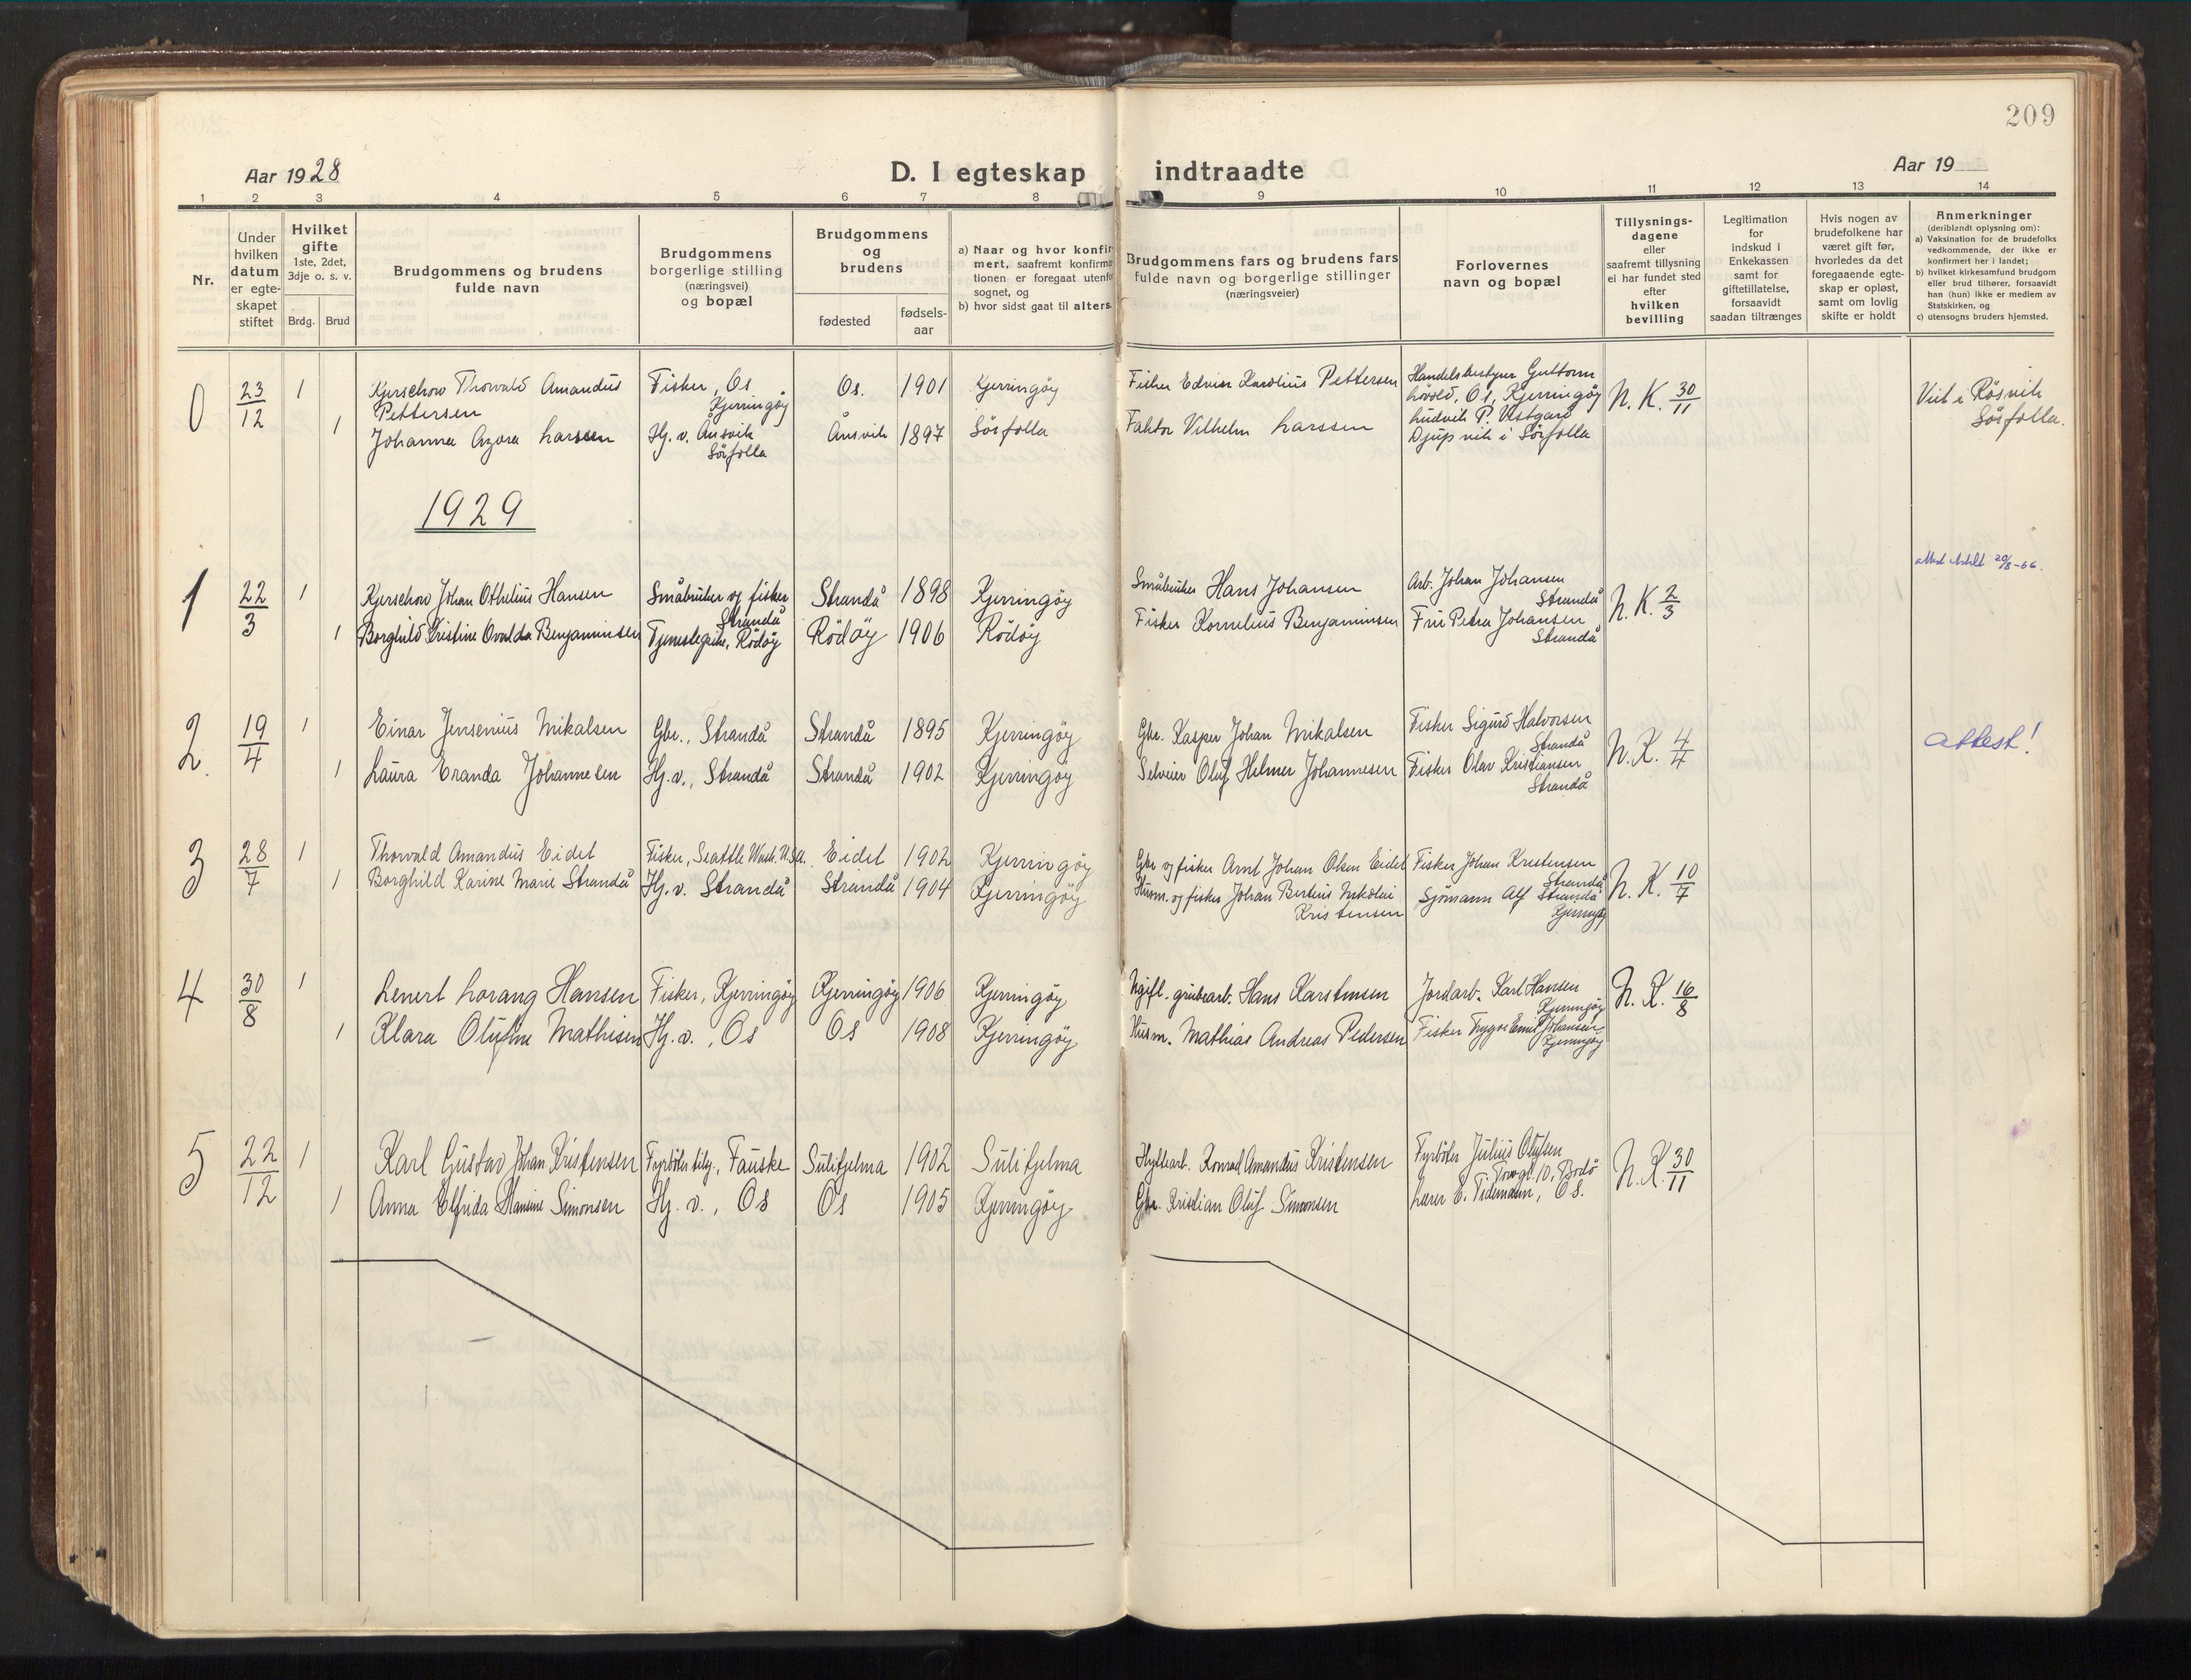 209
Aar 1928
D. I egteskap indtraadte
Aar 19
1 2 3 4 5 6 7 8 9 10 11 12 13 14
Nr.
Under
hvilken
datum
er egte-
skapet
stiftet
Hvilket
gifte
1ste, 2det,
3dje o. s. v.
Brdg. Brud
Brudgommens og brudens
fulde navn
Brudgommens
borgerlige stilling
(næringsvei)
og bopæl
Brudgommens
og
brudens
fødested
fødsels-
aar
a) Naar og hvor konfir
mert, saafremt konfirma
tionen er foregaat utenfo
sognet, og
b) hvor sidst gaat til alters.
Brudgommens fars og brudens fars
fulde navn og borgerlige stillinger
(næringsveier)
Forlovernes
navn og bopæl
Tillysnings-
dagene
eller
saafremt tillysning
ei har fundet sted
efter
hvilken
bevilling
Legitimation
for
indskud i
Enkekassen
samt for
giftetillatelse,
forsaavidt
saadan tiltrænges
Hvis nogen av
brudefolkene har
været gift før,
hvorledes da det
foregaaende egte-
skap er opløst,
samt om lovlig
skifte er holdt
Anmerkninger
(deriblandt oplysning om):
a) Vaksination for de brudefolks
vedkommende, der ikke er
konfirmert her i landet;
b) hvilket kirkesamfund brudgom
eller brud tilhører, forsaavidt
han (hun) ikke er medlem av
Statskirken, og
c) utensogns bruders hjemsted.
0 23/12 1 Kjerschow Thorvald Amandus Fisker, Os Os. 1901 Kjerringøy Fisker Edvin Karolius Pettersen Handelsbestyrer Guttorm
Pettersen Kjerringøy Løvold, Os, Kjerringøy N. K. 30/11 Viet i Røsvik
1 Johanna Agora Larssen Hj. v. Ånsvik Ånsvik 1897 Sörfolla Faktor Vilhelm Larssen Ludvik P. Vestgård Sörfolla.
Sörfolla Djupvik i Sörfolla
1929
1 22/3 1 Kjerschow Johan Othelius Hansen Småbruker og fisker Strandå 1898 Kjerringöy Småbruker Hans Johansen Arb. Johan Johansen N. K. 2/3 20/8-66.
Strandå Strandå
1 Borghild Kristine Ovalda Benjaminsen Tjenestepike, Rödöy Rödöy 1906 Rödöy Fisker Kornelius Benjaminsen Fru Petra Johansen
Strandå
2. 19/4 1 Einar Jensenius Mikalsen Gbr., Strandå Strandå 1895 Kjerringöy Gbr. Kasper Johan Mikalsen Fisker Sigurd Halvorsen N. K. 4/4 attest!
Strandå
1 Laura Eranda Johannesen Hj. v., Strandå Strandå 1902 Kjerringöy Selveier Oluf Helmer Johannesen Fisker Olav Kristiansen
Strandå
3 28/7 1 Thorvald Amandus Eidet Fisker, Seattle Wash. U.S.A. Eidet 1902 Kjerringöy Gbr og fisker Arnt Johan Olsen Eidet Fisker Johan Kristensen N. K. 10/7
Strandå
1 Borghild Karine Marie Strandå Hj. v. Strandå Strandå 1904 Kjerringöy Husm. og fisker Johan Bertius Nikolai Sjömann Alf Strandå
Kristensen Kjerringöy
4 30/8 1 Lenert Lorang Hansen Fisker, Kjerringöy Kjerringöy 1906 Kjerringöy Ugift. grubearb. Hans Karstensen Jordarb. Karl Hansen N. K. 16/8
Kjerringöy
1 Klara Olufine Mathisen Hj. v., Os Os 1908 Kjerringöy Husm. Mathias Andreas Pedersen Fisker Trygve Emil Johansen
Kjerringöy
5 22/12 1 Karl Gustav Johan Kristensen Fyrböter, Fauske Sulitjelma 1902 Sulitjelma Hyttearb. Konrad Amandus Kristensen Fyrböter Julius Olufsen N. K. 30/11
Torvgt. 10, Bodö
1 Anna Elfrida Hansine Simonsen Hj. v., Os Os 1905 Kjerringöy Gbr. Kristian Oluf Simonsen Lærer E. Tidemann, Os.